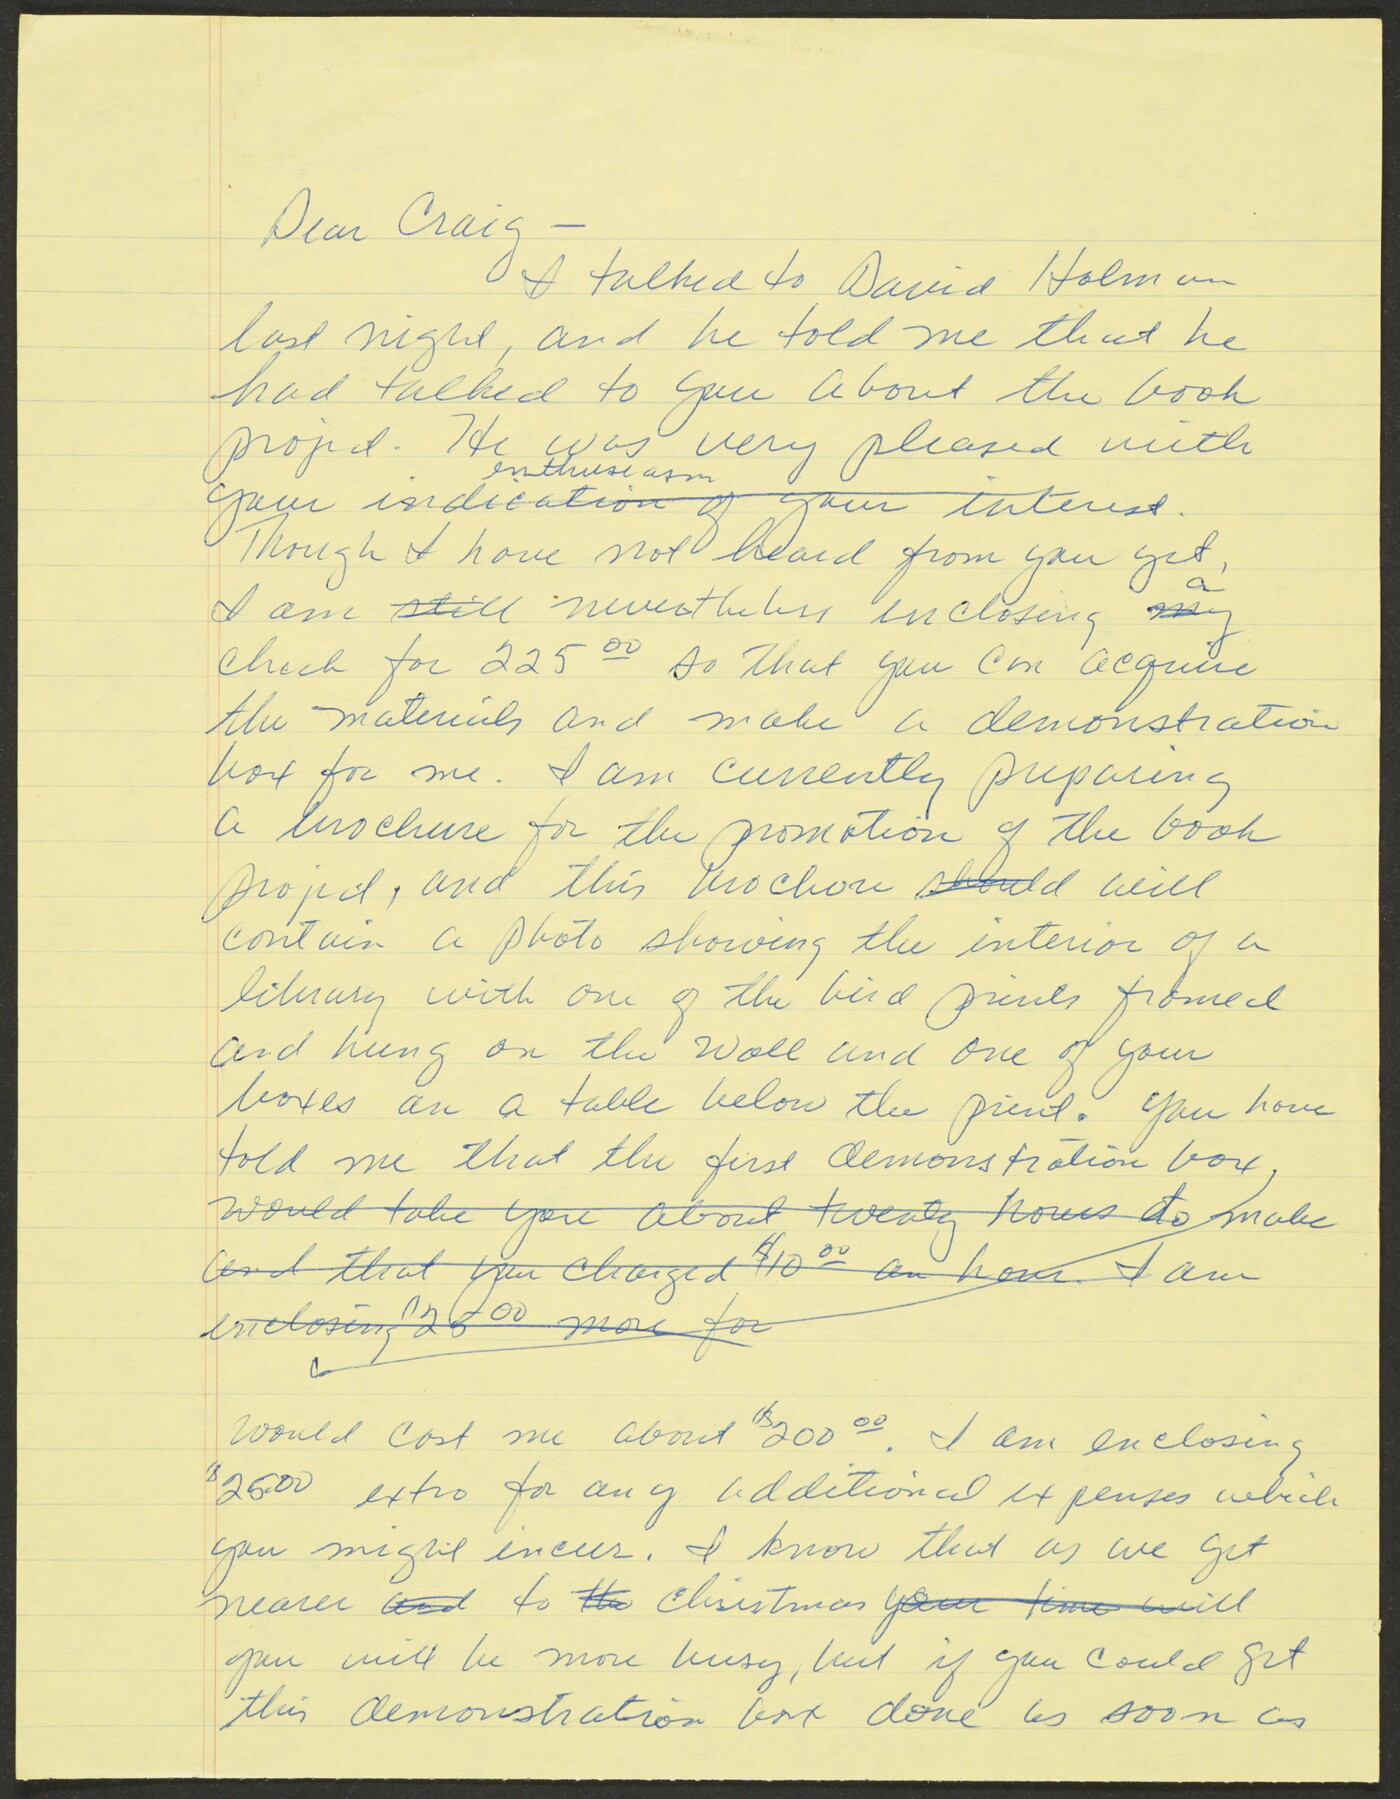 Dear Craig –
I talked to David Holman
last night, and he told me that he
had talked to you about the book
project. He was very pleased with
enthusiasm
your indication of your interest.
Though I have not heard from you yet,
a
I am still nevertheless enclosing my
check for 225 00 so that you can acquire
the materials and make a demonstration
box for me. I am currently preparing
a brochure for the promotion of the book
project, and this brochure should will
contain a photo showing the interior of a
library with one of the bird prints framed
and hung on the wall and one of your
boxes on a table below the print. You have
told me that the first demonstration box,
would take you about twenty hours to make
and that you charged $10 00 an hour. I am
enclosing $25 00 more for
would cost me about $200 00. I am enclosing
$25.00 extra for any additional expenses which
you might incur. I know that as we get
nearer and to the Christmas your time will
you will be more busy, but if you could get
this demonstration box done as soon as